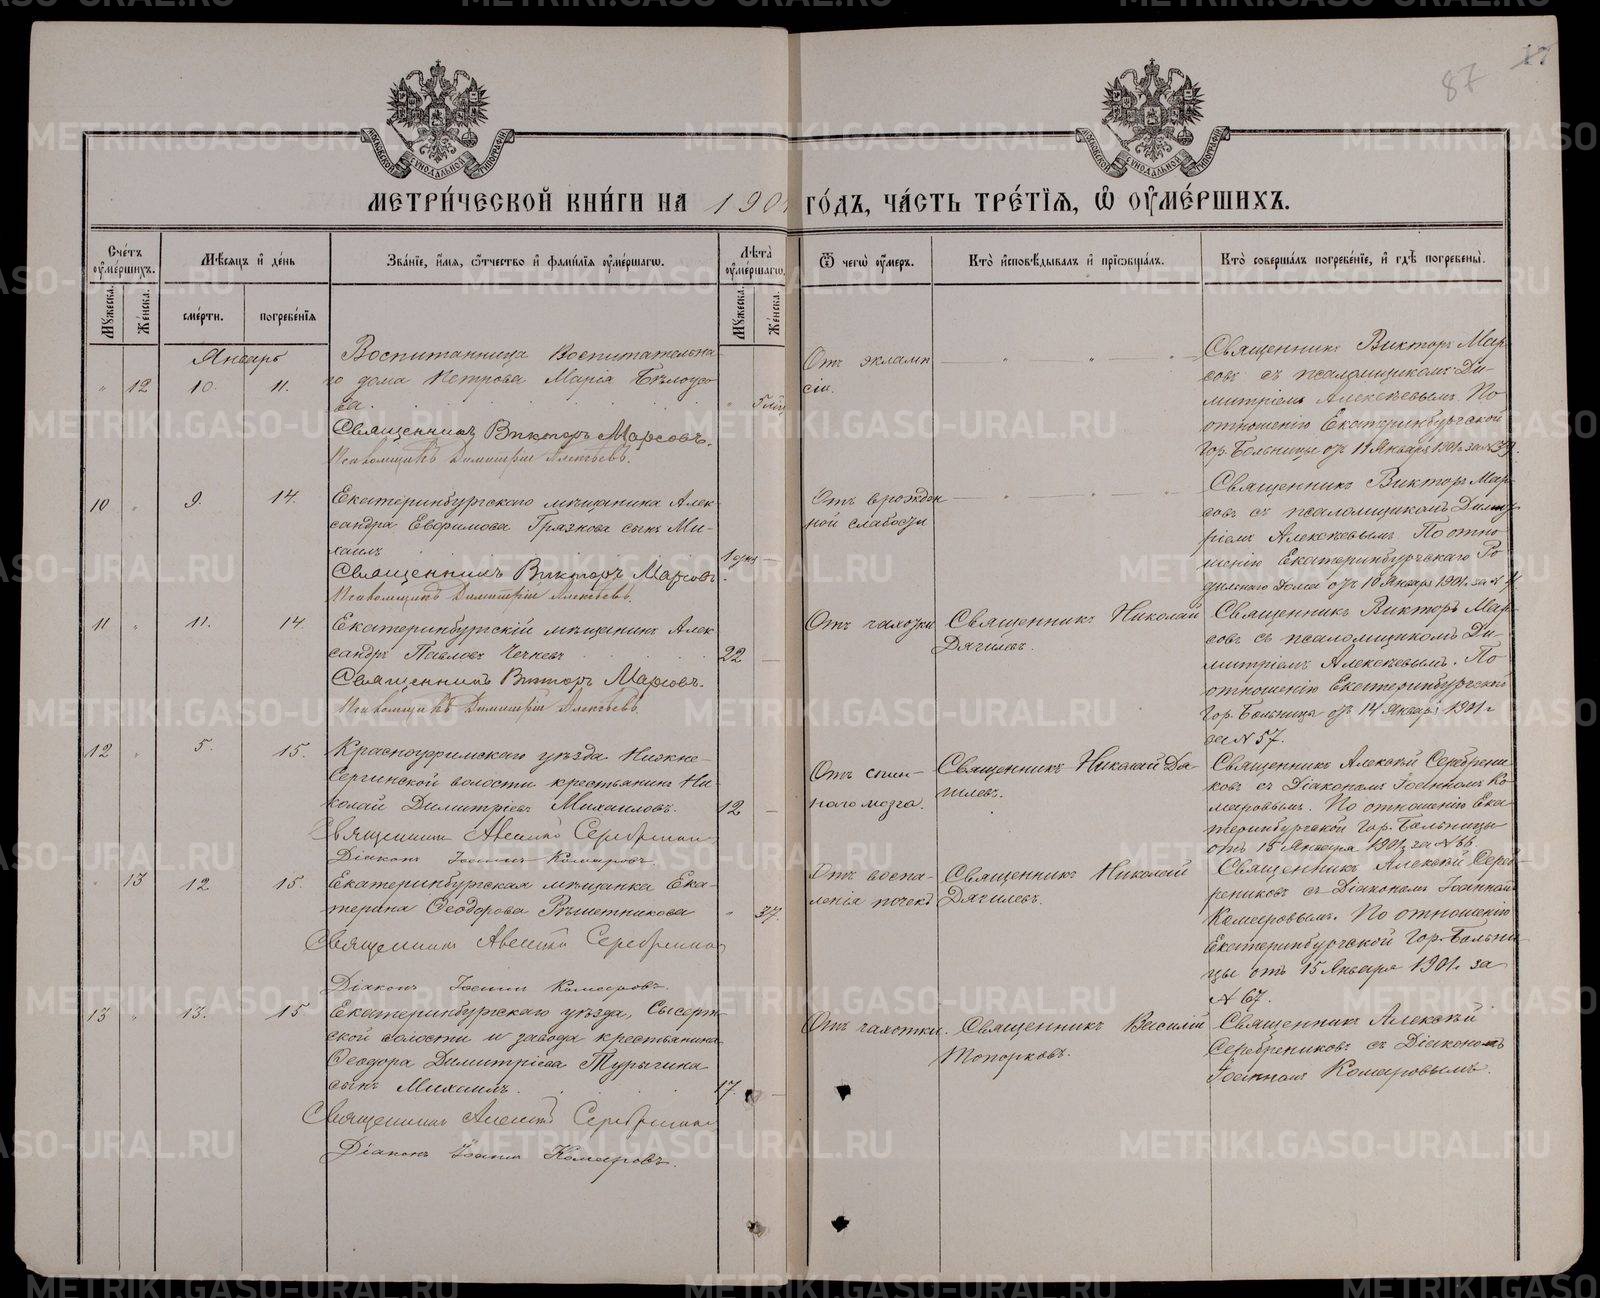 87
МЕТРИЧЕСКОЙ КНИГИ НА 1901 ГОДЪ, ЧАСТЬ ТРЕТІЯ, Ѡ ОУМЕРШИХЪ.
МОСКОВСКОЙ СѴНОДАЛЬНОЙ ТИПОГРАФІИ
МОСКОВСКОЙ СѴНОДАЛЬНОЙ ТИПОГРАФІИ
Счетъ оумершихъ.
Мужеска.
Женска.
Мѣсяцъ и день
смерти.
погребенія
Званіе, имя, ѿчество и фамилія оумершагѡ.
Лѣта оумершагѡ.
Мужеска.
Женска.
Ѿ чегѡ оумеръ.
Кто исповѣдывалъ и пріобщалъ.
Кто совершалъ погребеніе, и гдѣ погребены.
Январь
" 12 10. 11.
Воспитанница Воспитательна-
го дома Петрова Марія Бѣлоусо-
ва.
Священникъ Викторъ Марсовъ.
Псаломщикъ Димитрій Алексѣевъ.
Отъ эклямп
сіи.
Священникъ Виктор Мар-
совъ съ псаломщикомъ Ди-
митріемъ Алексѣевымъ. По
отношенію Екатеринбургской
Гор. Больницы отъ 11 Января 1901 г. за №39.
10 " 9. 14.
Екатеринбургскаго мѣщанина Алек-
сандра Евфимова Грязнова сынъ Ми-
хаилъ
1 дня
Священникъ Викторъ Марсовъ.
Псаломщикъ Димитрій Алексѣевъ.
Отъ врожден
ной слабости
Священникъ Викторъ Мар-
совъ съ псаломщикомъ Димит
ріемъ Алексѣевымъ. По отно
шенію Екатеринбургскаго Ро
дильнаго Дома отъ 10 Января 1901 г. за №
11 " 11. 14.
Екатеринбургскій мѣщанинъ Алек
сандръ Павловъ
22
Священникъ Викторъ Марсовъ.
Псаломщикъ Димитрій Алексѣевъ.
Отъ чахотки
Священникъ Николай
Дягилевъ.
Священникъ Викторъ Мар-
совъ съ псаломщикомъ Ди-
митріемъ Алексѣевымъ. По
отношенію Екатеринбургской
Гор. Больницы отъ 14 Января 1901 г
за №57.
12 " 5. 15.
Красноуфимскаго уѣзда Нижне-
Сергинской волости крестьянинъ Ни-
колай Димитріевъ Михаиловъ.
12
Священникъ Алексѣй Серебрениковъ
Діаконъ Іоаннъ Комаровъ.
Отъ спин-
ного мозга.
Священникъ Николай Дя-
гилевъ.
Священникъ Алексѣй Серебрени
ковъ съ Діакономъ Іоанномъ Ко
маровымъ. По отношенію Ека
теринбургской Гор. Больницы
отъ 15 Января 1901 г. за №66.
" 13 12 15.
Екатеринбургская мѣщанка Ека-
терина Ѳеодорова Рѣшетникова
" 37.
Священникъ Алексѣй Серебрениковъ
Діаконъ Іоаннъ Комаровъ.
Отъ воспа-
ленія почекъ
Священникъ Николай
Дягилевъ.
Священникъ Алексѣй Сереб
рениковъ съ Діакономъ Іоанномъ
Комаровымъ. По отношенію
Екатеринбургской Гор. Больни
цы отъ 15 Января 1901 г. за
№ 67.
13 " 13. 15
Екатеринбургскаго уѣзда, Сысерт
ской волости и завода крестьянина
Ѳеодора Димитріева Турыгина
сынъ Михаилъ.
17.
Священникъ Алексѣй Серебрениковъ
Діаконъ Іоаннъ Комаровъ.
Отъ чахотки.
Священникъ Василій
Топорковъ.
Священникъ Алексѣй
Серебрениковъ съ Діакономъ
Іоанномъ Комаровымъ.
METRIKI.GASO-URAL.RU